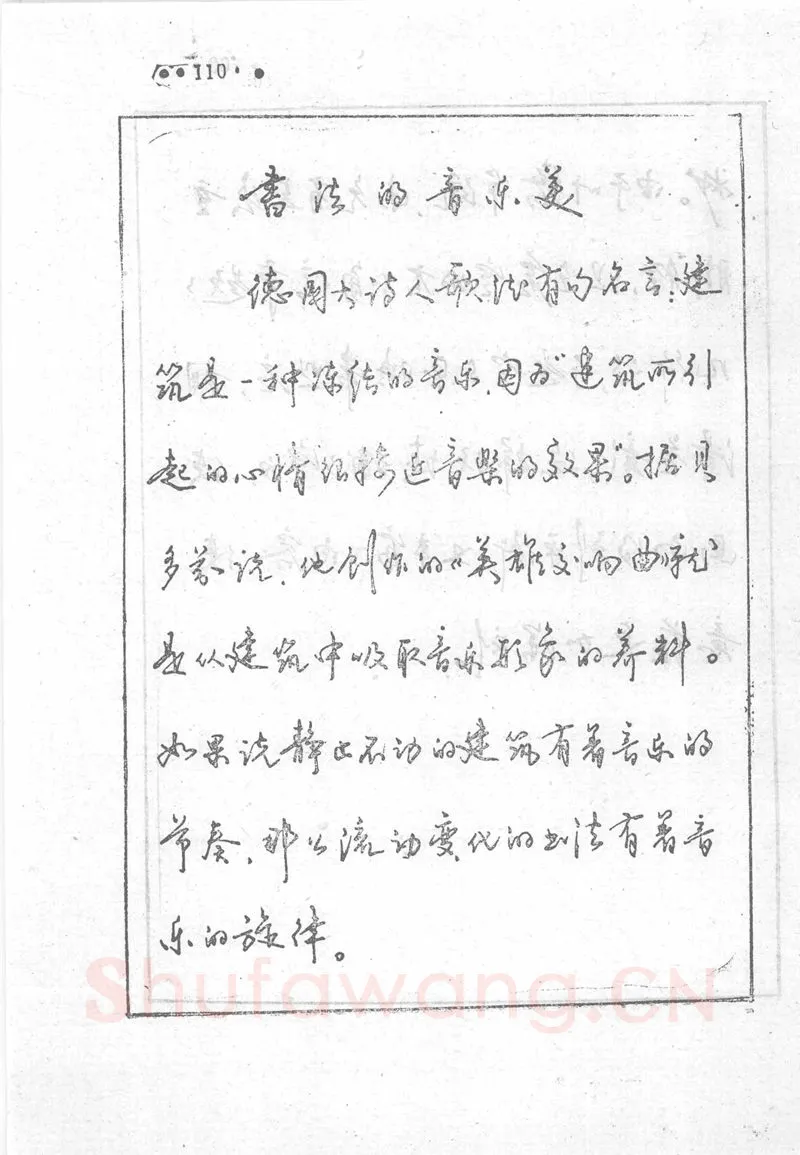 110
书法的音乐美
德国大诗人歌德有句名言:建
筑是一种冻结的音乐,因为“建筑所引
起的心情很接近音乐的效果”。据贝
多芬说,他创作的《英雄交响曲》就
是从建筑中吸取音乐形象的养料。
如果说静止不动的建筑有着音乐的
节奏,那么流动变化的书法有着音
乐的旋律。
Shufawang.CN